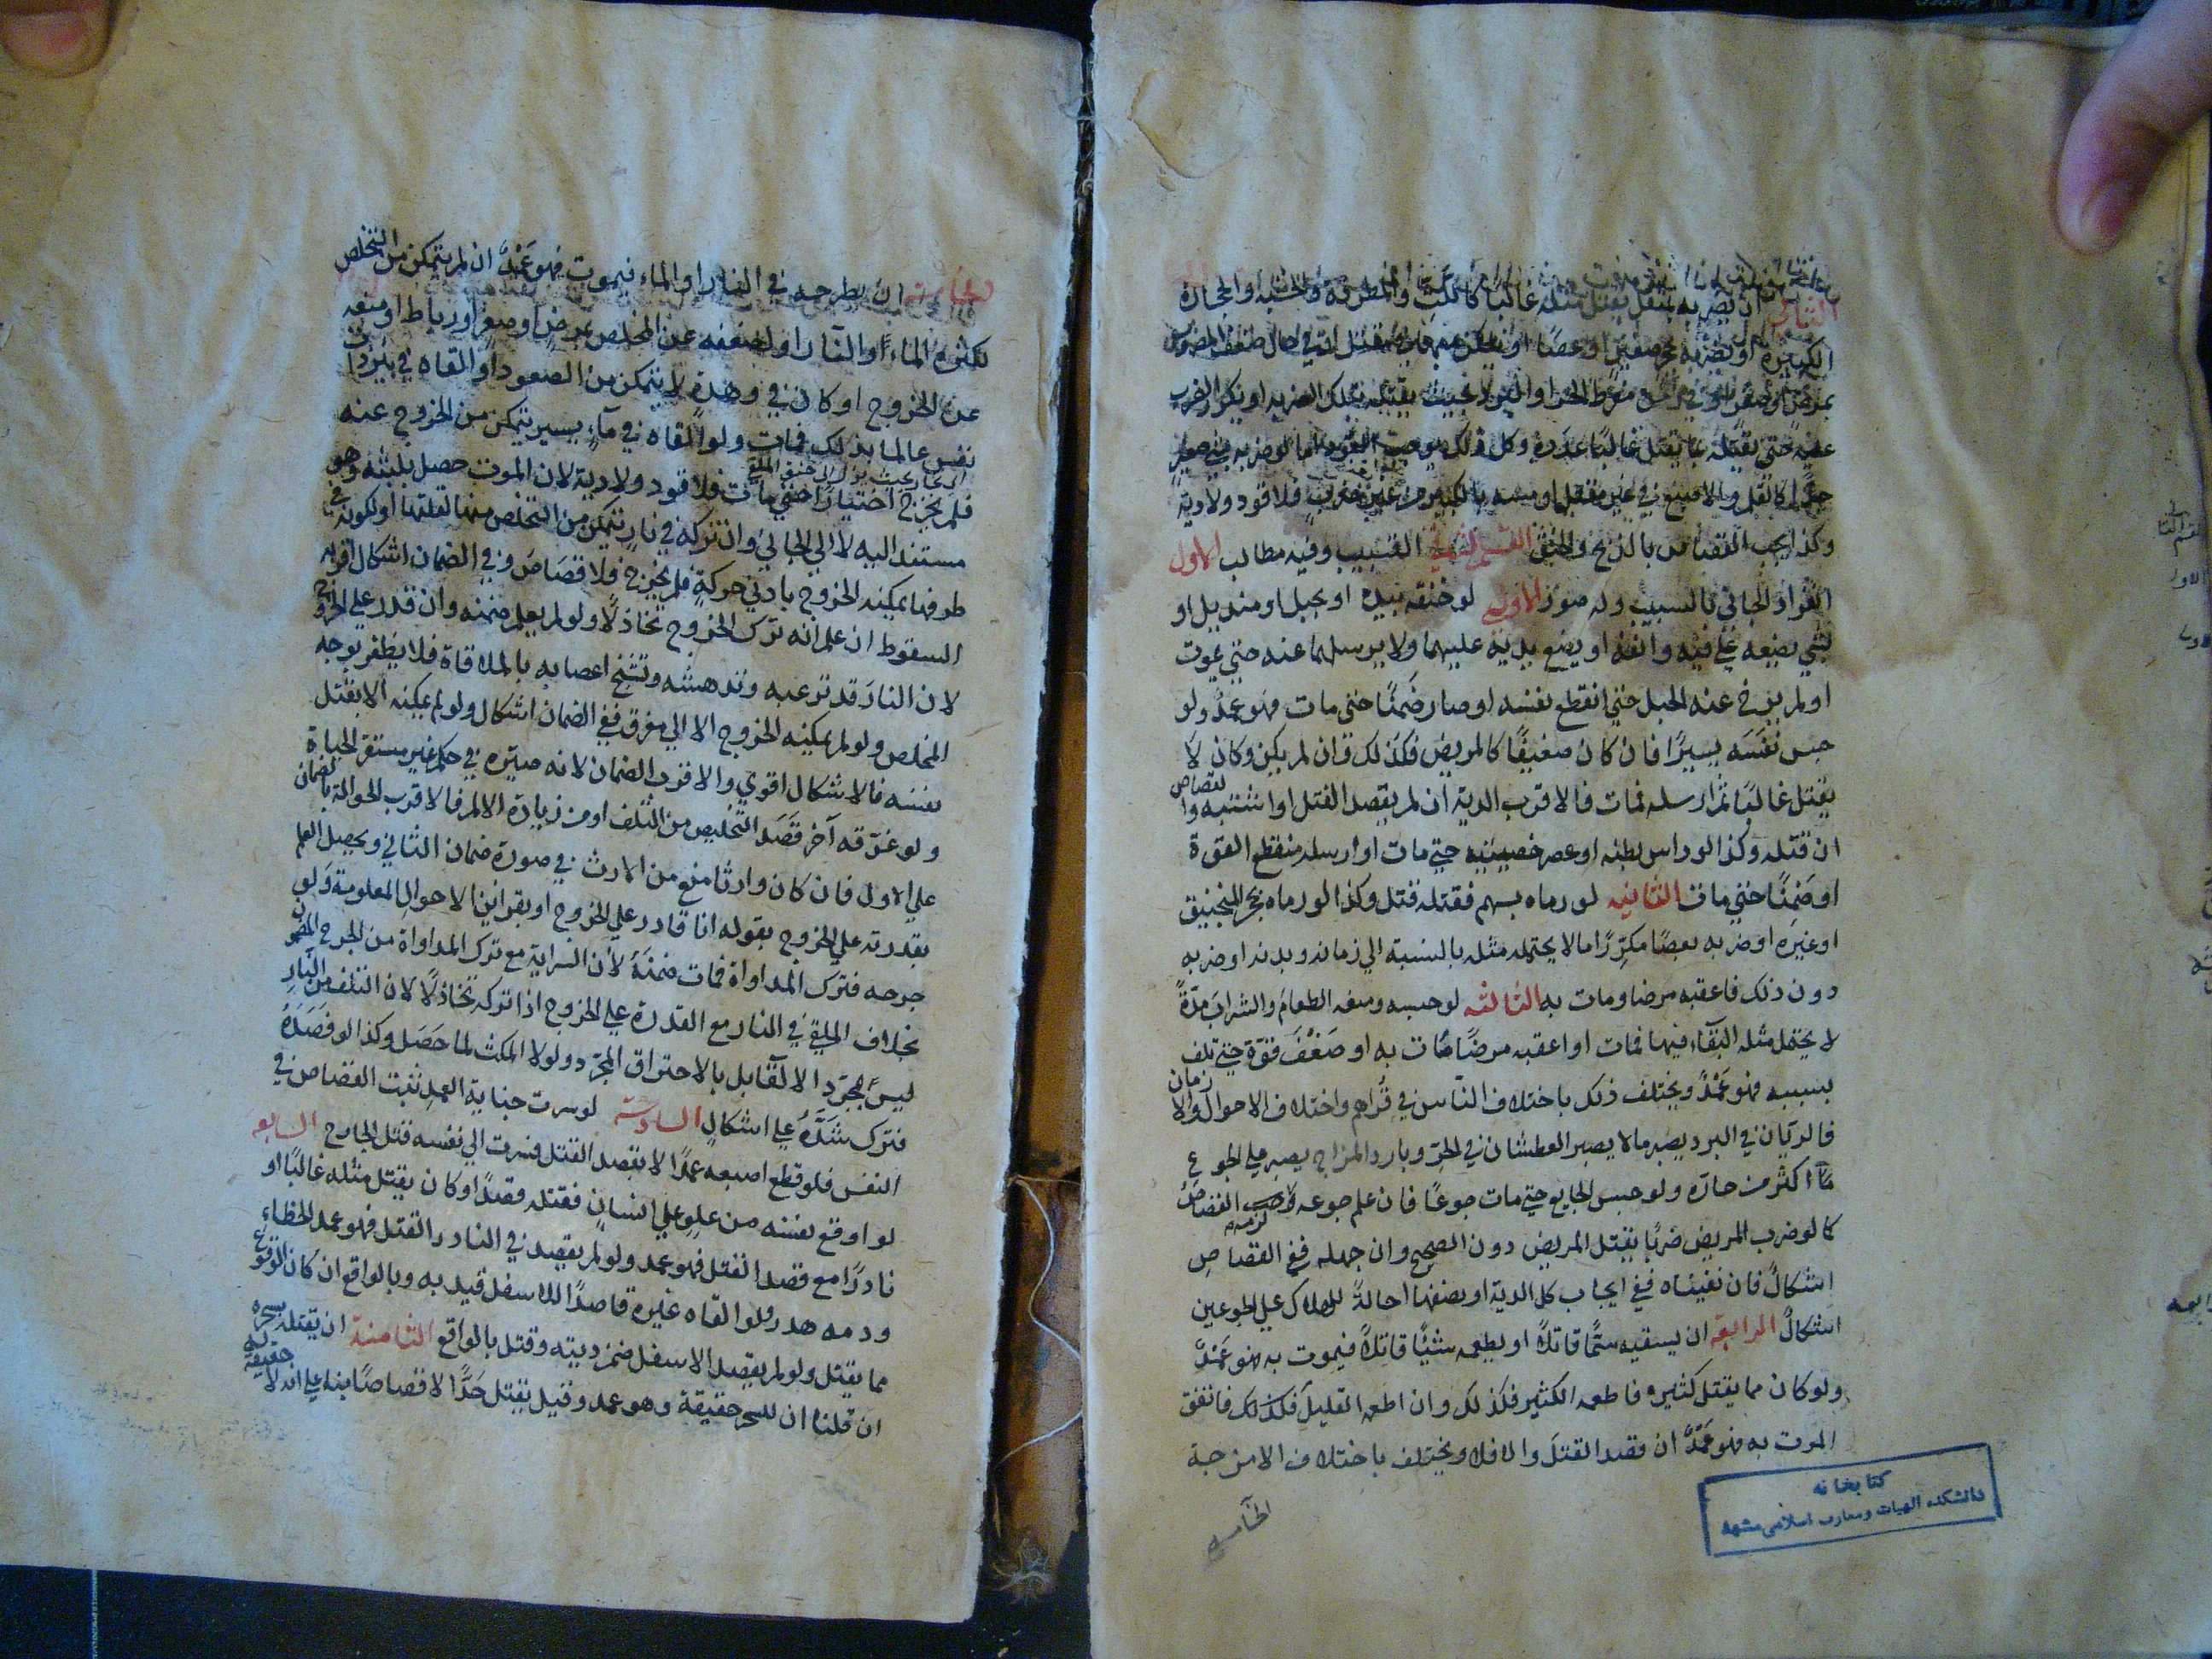 الثاني ان يضربه بمثقل يقتل مثله غالبا كاللت والمطرقة والخشبة والحجارة
الكبيرة او يضربه بحجر صغير او عصا او يلكزه بها في مقتل او في حال ضعف المضروب
بمرض او صغر او في زمن مفرط الحر او البرد بحيث يقتله بتلك الضربة او يكرر الضرب
عليه حتى يقتله بما يقتل غالبا عدده وكل ذلك يوجب القود اما لو ضربه بشيء صغير
جدا كالقلم والاصبع في غير مقتل او مسه بالكبير من غير ضرب فلا قود ولا دية
وكذا يجب القصاص بالذبح والخنق القسم الثاني التسبيب وفيه مطالب الاول
انفراد الجاني بالتسبيب وله صور الاولى لو خنقه بيده او بحبل او منديل او
بشي يضعه على فيه وانفه او يضع يديه عليهما ولا يرسلهما عنه حتي يموت
او لم يرخ عنه الحبل حتي انقطع نفسه او صار ضمنا حتي مات فهو عمد ولو
حبس نفسه يسيرا فان كان ضعيفا كالمريض فكذلك وان لم يكن وكان لا
يقتل غالبا ثم ارسله فمات فالاقرب الدية ان لم يقصد القتل او اشتبه والقصاص
ان قتله وكذا لو داس بطنه او عصر خصيتيه حتي مات او ارسله منقطع القوة
او ضمنا حتي مات الثانيه لو رماه بسهم فقتله قتل وكذا لو رماه بحجر المنجنيق
او غيره او ضربه بعصا مكررا ما لا يحتمله مثله بالنسبة الي زمانه وبدنه او ضربه
دون ذلك فاعقبه مرضا ومات به الثالثه لو حبسه ومنعه الطعام والشراب مدة
لا يحتمل مثله البقاء فيها فمات او اعقبه مرضا مات به او ضعف قوة حتي تلف
بسببه فهو عمد ويختلف ذلك باختلاف الناس في قواهم واختلاف الاحوال والازمان
فالريان في البرد يصبر ما لا يصبر العطشان في الحر وبارد المزاج يصبر علي الجوع
ما اكثر من حاره ولو حبس الجايع حتي مات جوعا فان علم جوعه لزمه القصاص
كما لو ضرب المريض ضربا يقتل المريض دون الصحيح وان جهله ففي القصاص
اشكال فان نفيناه ففي ايجاب كل الدية او نصفها احالة للهلاك علي الجوعين
اشكال الرابعة ان يسقيه سما قاتلا او يطعمه شيئا قاتلا فيموت به فهو عمد
ولو كان مما يقتل كثيره فاطعمه الكثير فكذلك وان اطعمه القليل فكذلك فاتفق
الموت به فهو عمد ان قصد القتل والا فلا ويختلف باختلاف الامزجة
الخامسه
كتابخانه
دانشكده الهيات ومعارف اسلامى مشهد
الخامسة ان يطرحه في النار او الماء فيموت فهو عمد ان لم يتمكن من التخلص
لكثرة الماء او النار او لضعفه عن التخلص بمرض او صغر او رباط او منعه
عن الخروج او كان في وهدة لا يتمكن من الصعود او القاه في بئر ذات
نفس عالما بذلك فمات ولو القاه في ماء يسير يتمكن من الخروج عنه
فلم يخرج اختيارا حتي مات فلا قود ولا دية لان الموت حصل بلبثه وهو
مستند اليه لا الي الجاني وان تركه في نار يتمكن من التخلص منها لقلتها او لكونه في
طرفها يمكنه الخروج بادني حركة فلم يخرج فلا قصاص وفي الضمان اشكال اقربه
السقوط ان علم انه ترك الخروج تخاذلا ولو لم يعلم ضمنه وان قدر علي الخروج
لان النار قد ترعبه وتدهشه وتشنج اعصابه بالملاقاة فلا يظفر بوجه
المخلص ولو لم يمكنه الخروج الا الي مغرق ففي الضمان اشكال ولو لم يمكنه الا بقتل
نفسه فالاشكال اقوي والاقرب الضمان لانه صيره في حكم غير مستقر الحياة
ولو غرقه آخر قصد التخليص من التلف او من زيادة الالم فالاقرب الحوالة بالضمان
علي الاول فان كان وارثا منع من الارث في صورة ضمان الثاني ويحصل العلم
بقدرته علي الخروج بقوله انا قادر علي الخروج او بقرائن الاحوال المعلومة ولو
جرحه فترك المداواة فمات ضمنه لان السراية مع ترك المداواة من الجرح المضمون
بخلاف الملقي في النار مع القدرة علي الخروج اذا تركه تخاذلا لان التلف من النار
ليس بمجرد الالقاء بل بالاحتراق المتجدد ولولا المكث لما حصل وكذا لو فصده
فترك شده علي اشكال السادسة لو سرت جناية العمد ثبت القصاص في
النفس فلو قطع اصبعه عمدا لا بقصد القتل فسرت الي نفسه قتل الجارح السابعه
لو اوقع نفسه من علو علي انسان فقتله قصدا وكان يقتل مثله غالبا او
نادرا مع قصد القتل فهو عمد ولو لم يقصد في النادر القتل فهو عمد الخطاء
ودمه هدر ولو القاه غيره قاصدا للاسفل قيد به وبالواقع ان كان الوقوع
مما يقتل ولو لم يقصد الاسفل ضمن ديته وقتل بالواقع الثامنة ان يقتله بسحره
ان قلنا ان للسحر حقيقة وهو عمد وقيل يقتل حدا لا قصاصا بناء علي انه لا حقيقة له